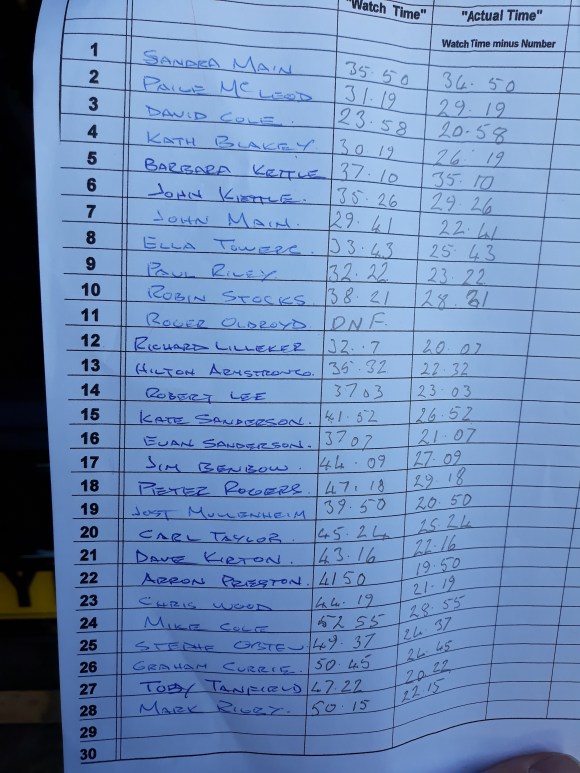 "Watch Time" "Actual Time"
Watch Time minus Number
1 SANDRA MAIN 35.50 34.50
2 PAULE MCLEOD 31.19 29.19
3 DAVID COLE. 23.58 20-58
4 KATH BLAKEY 30.19 26.19
5 BARBARA KETTLE 37.10 35.10
6 JOHN KETTLE. 35.26 29.26
7 JOHN MAIN. 29.41 22.41
8 ELLA TOWERS. 33.43 25.43
9 PAUL RILEY 32.22 23.22
10 ROBIN STOCKS 38.21 28.21
11 ROGER OLDROYD DNF.
12 RICHARD LILLEKER 32.7 20.07
13 HILTON ARMSTRONG. 35.32 22.32
14 ROBERT LEE 3703 23.03
15 KATE SANDERSON. 41.52 26.52
16 EUAN SANDERSON. 3707 21.07
17 JIM BENBOW. 44.09 27.09
18 PETER ROGERS. 47.18 29.18
19 JOST MULLENHEIM 39.50 20.50
20 CARL TAYLOR. 45.24 25.24
21 DAVE KIRTON. 43.16 22.16
22 ARRON PRESTON. 4150 19.50
23 CHRIS WOOD 44.19 21.19
24 MIKE COLE 52 55 28.55
25 49.37 24 37
26 GRAHAM CURRIE. 50.45 24.45
27 TOBY TANFIELD 47.22 20 22
28 MARK RILEY. 50.15 22.15
29
30